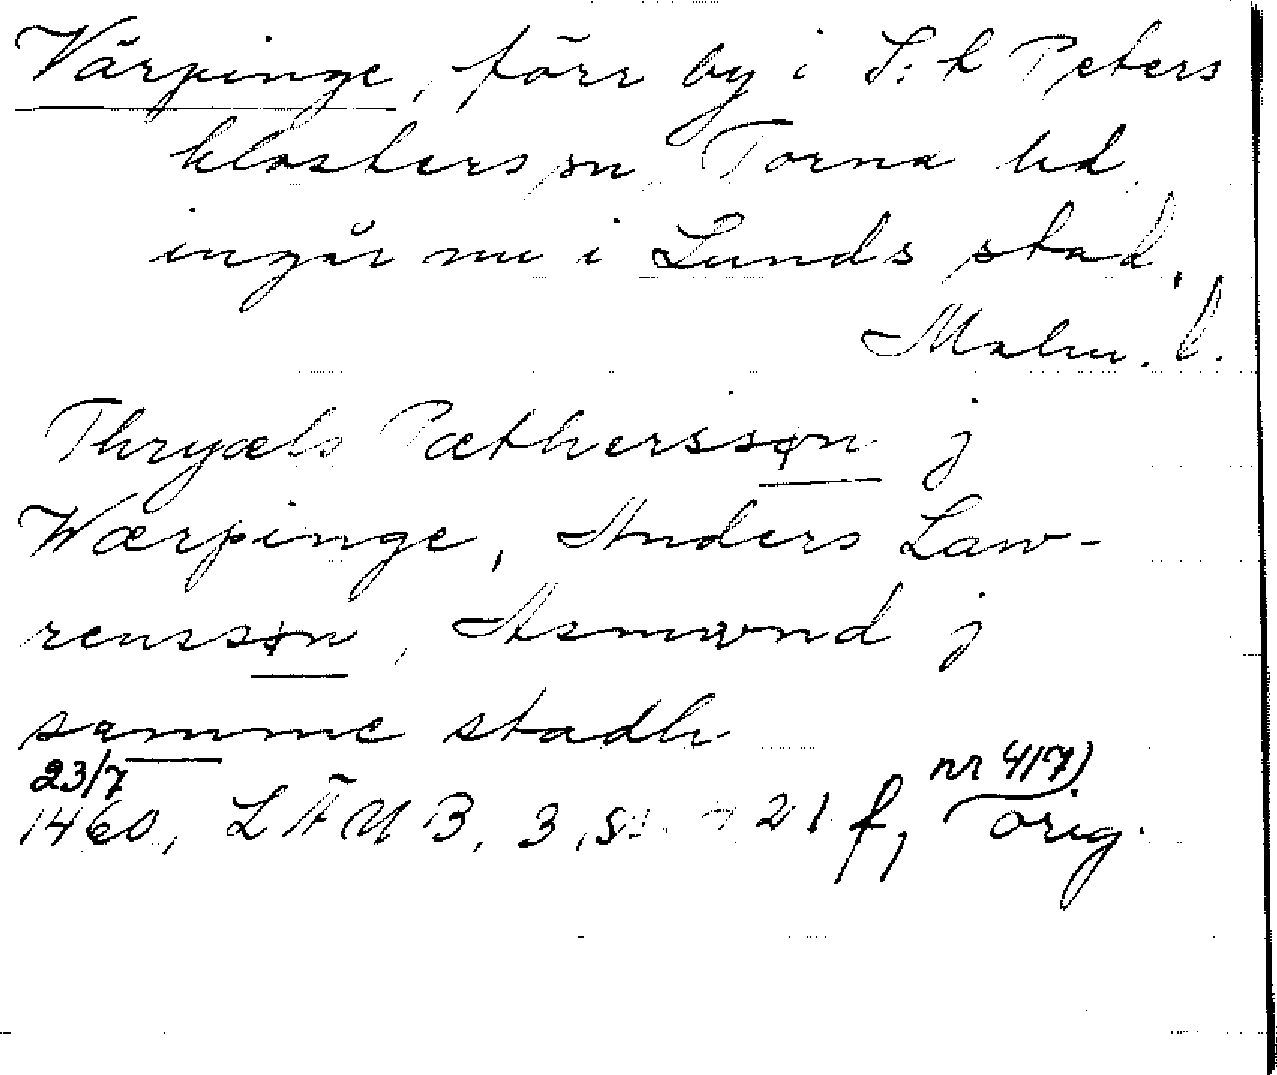 Värpinge, förr by i S:t Peters
klosters sn, Torna hd,
ingår nu i Lunds stad,
Malm. l.
Thryæls Pæthersson j
Wærpinge, Anders Law-
rensson, Asmwnd j
samme stadh
23/7 nr 417)
1460, LÄUB, 3, s. 21 f, orig.